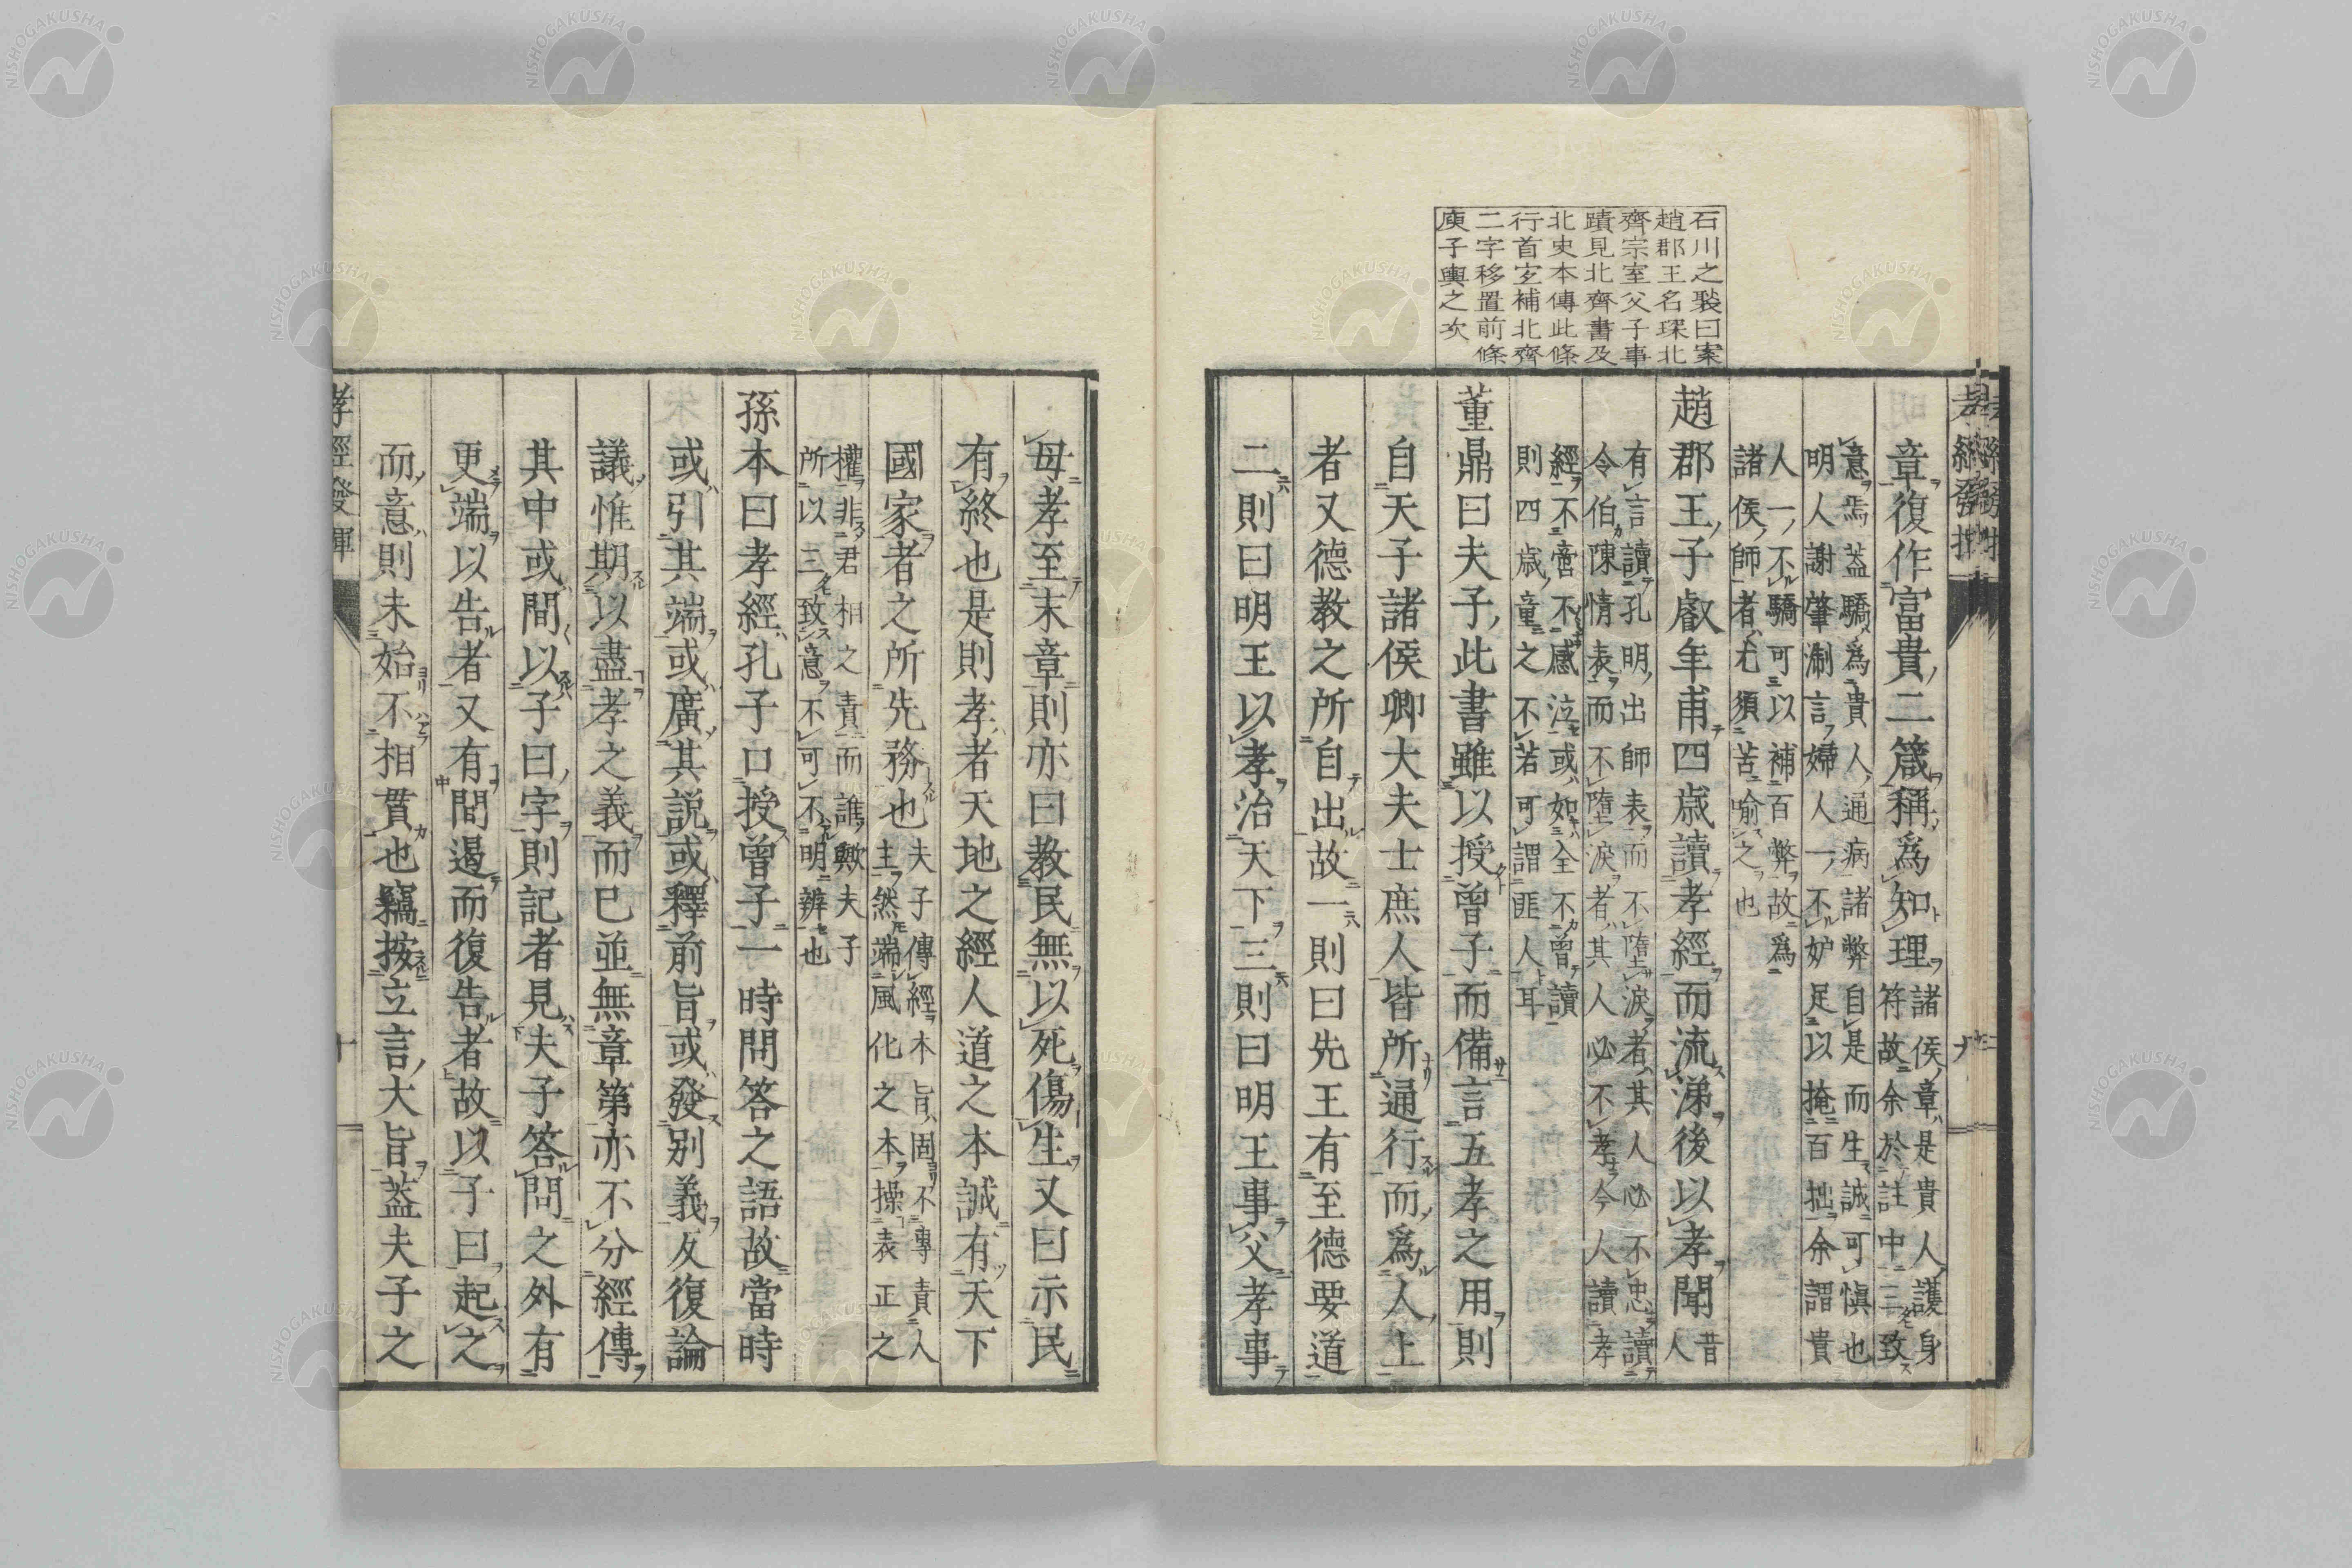 石川之褧曰案
趙郡王名琛北
齊宗室父子事
蹟見北齊書及
北史本傳此條
行首宐補北齊
二字移置前條
庾子輿之次
章復作富貴二箴稱爲知理
諸侯章是貴人護身
符故余於註中三致
意焉蓋驕爲貴人通病諸弊自是而生誠可愼也
明人謝肇淛言婦人一不妒足以掩百拙余謂貴
人一不驕可以補百弊故爲
諸侯師者尤須苦喻之也
趙郡王子叡年甫四歳讀孝經而流涕後以孝聞
昔
人
有言讀孔明出師表而不墮淚者其人必不忠讀
令伯陳情表而不墮淚者其人必不孝今人讀孝
經不啻不感泣或如全不曾讀
則四歳童之不若可謂匪人耳
董鼎曰夫子此書雖以授曾子而備言五孝之用則
自天子諸侯卿大夫士庶人皆所通行而爲人上
者又德教之所自出故一則曰先王有至德要道
二則曰明王以孝治天下三則曰明王事父孝事
母孝至末章則亦曰教民無以死傷生又曰示民
有終也是則孝者天地之經人道之本誠有天下
國家者之所先務也
夫子傳經本旨固不專責人
主然端風化之本操表正之
權非君相之責而誰歟夫子
所以三致意不可不明辨也
孫本曰孝經孔子口授曾子一時問答之語故當時
或引其端或廣其説或釋前旨或發别義反復論
議惟期以盡孝之義而已並無章第亦不分經傳
其中或間以子曰字則記者見夫子答問之外有
更端以告者又有間遏而復告者故以子曰起之
而意則未始不相貫也竊按立言大旨蓋夫子之
孝經發揮
十